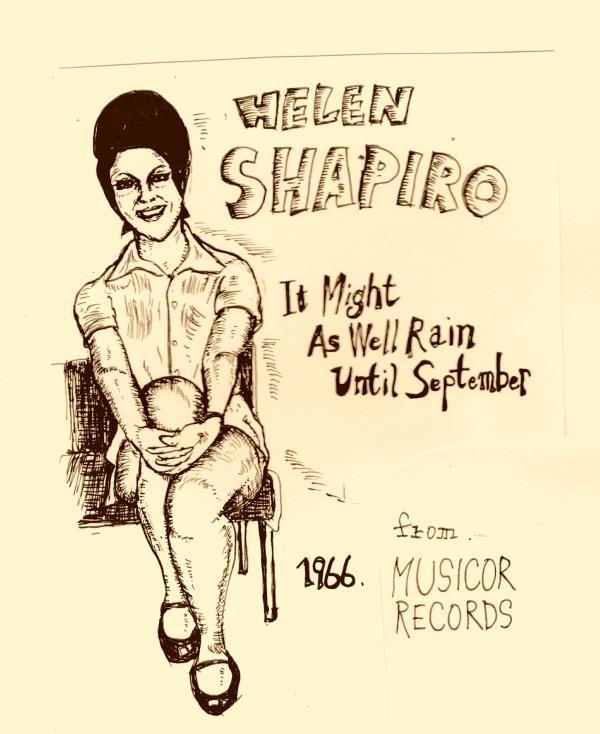 HELEN
SHAPIRO
It Might
As Well Rain
Until September
from.
1966.
MUSICOR
RECORDS